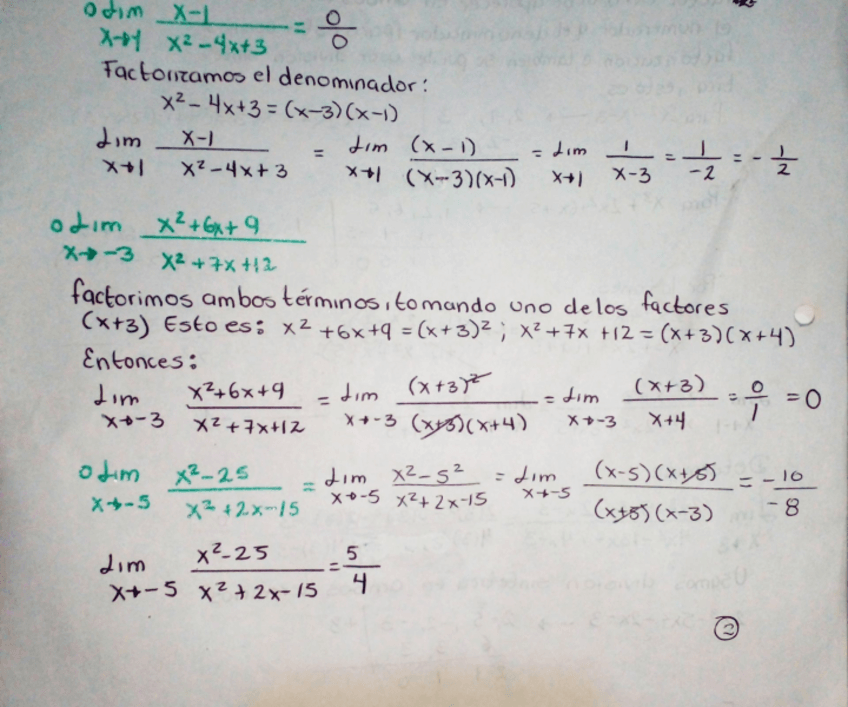 o Lim x→1 x-1 / x² - 4x+3 = 0/0
Factorizamos el denominador:
x² - 4x+3 = (x-3)(x-1)
Lim x→1 x-1 / x² - 4x+3 = Lim x→1 (x-1) / (x-3)(x-1) = Lim x→1 1 / x-3 = 1/-2 = - 1/2
o Lim x→-3 x²+6x+9 / x²+7x+12
factorimos ambos términos, tomando uno de los factores
(x+3) Esto es: x²+6x+9 = (x+3)²; x²+7x+12 = (x+3)(x+4)
Entonces:
Lim x→-3 x²+6x+9 / x²+7x+12 = Lim x→-3 (x+3)² / (x+3)(x+4) = Lim x→-3 (x+3) / x+4 = 0/1 = 0
o Lim x→-5 x²-25 / x²+2x-15 = Lim x→-5 x²-5² / x²+2x-15 = Lim x→-5 (x-5)(x+5) / (x+5)(x-3) = -10 / -8
Lim x→-5 x²-25 / x²+2x-15 = 5/4
2